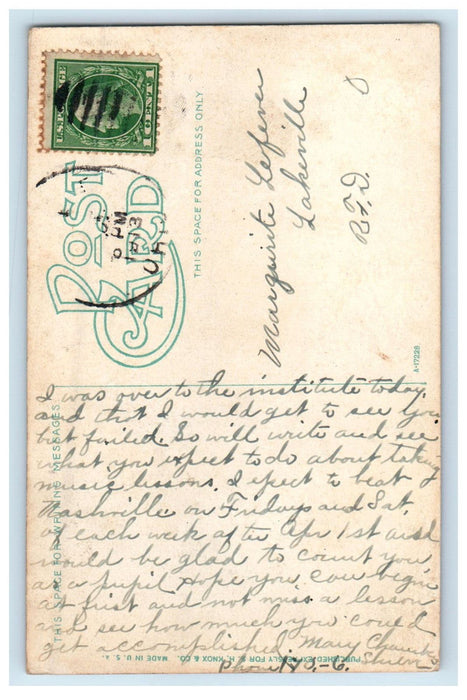 U.S. POSTAGE
1 CENT 1
POST
CARD
PM
THIS SPACE FOR ADDRESS ONLY
Marguerite Lefever
Lakeville
R.F.D.
O
A-17228
THIS SPACE FOR WRITING MESSAGES
I was over to the institute today,
and that I would get to see you
but failed. So will write and see
what you expect to do about taking
music lessons. I expect to beat
Nashville on Fridays and Sat.
of each week after Apr 1st and
would be glad to count you
as a pupil Hope you can begin
at first and not miss a lesson
and see how much you could
get accomplished. Mary
Phone 143-6.
PUBLISHED EXPRESSLY FOR S. H. KNOX & CO. MADE IN U.S.A.